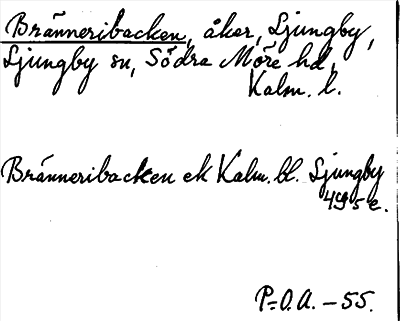 Bränneribacken, åker, Ljungby,
Ljungby sn, Södra Möre hd,
Kalm. l.
Bränneribacken ek Kalm. bl. Ljungby
4g5e.
P-O.A. – 55.